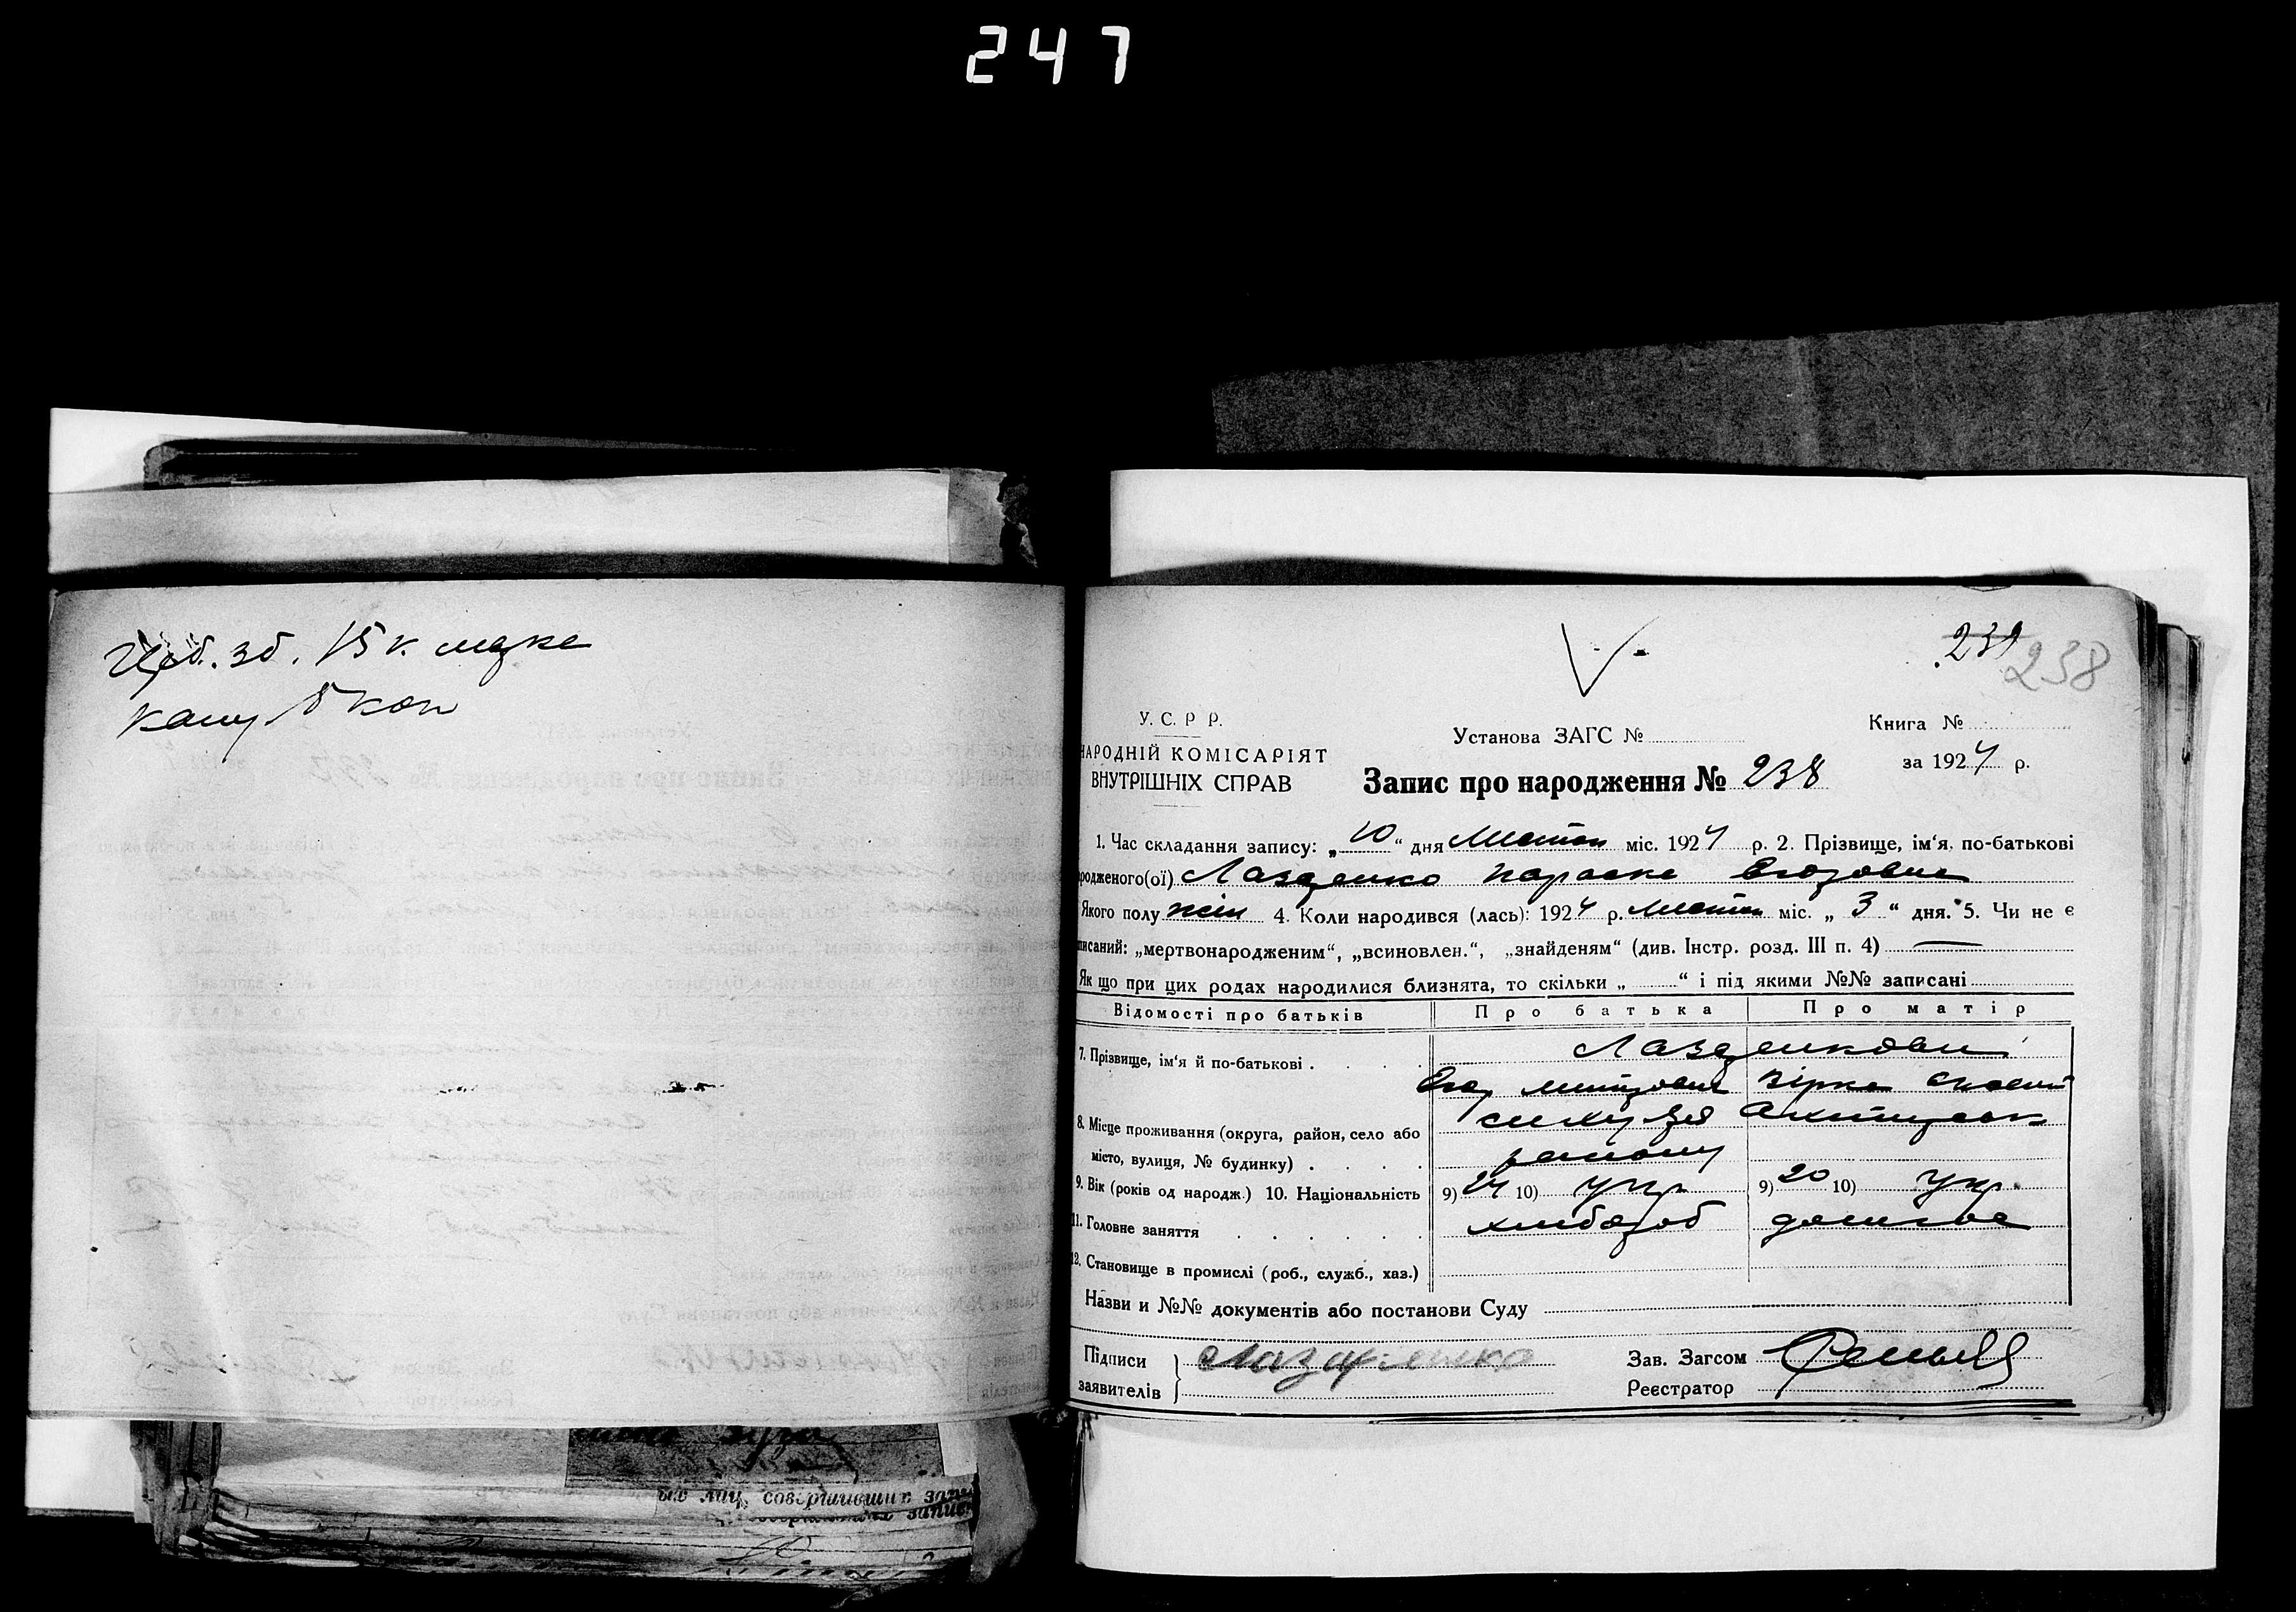 247
зб. 15 к. марка
5 коп
239
238
У. С. Р Р.
НАРОДНІЙ КОМІСАРІЯТ
ВНУТРІШНІХ СПРАВ
Установа ЗАГС №
Книга №
за 1924 р.
Запис про народження № 238
1. Час складання запису: „10“ дня Лютого міс. 1924 р. 2. Прізвище, ім'я, по-батькові
родженого(ої) Лазаренко Параска Єгоровна
Якого полу жін 4. Коли народився (лась): 1924 р. Лютого міс. „3“ дня. 5. Чи не є
писаний: „мертвонародженим“, „всиновлен.“, „знайденям“ (див. Інстр. розд. III п. 4) —
Як що при цих родах народилися близнята, то скільки „ “ і під якими №№ записані
Відомості про батьків Про батька Про матір
7. Прізвище, ім'я й по-батькові . . . . Лазаренкови
Єгор
8. Місце проживання (округа, район, село або
місто, вулиця, № будинку) . . . . району
9. Вік (років од народж.) 10. Національність 9) 24 10) укр 9) 20 10) укр.
11. Головне заняття . . . . . . хлібороб домашнє
12. Становище в промислі (роб., служб., хаз.)
Назви и №№ документів або постанови Суду
Підписи
заявителів
Лазаренко
Зав. Загсом
Реєстратор
ых лиц, совершивших запи